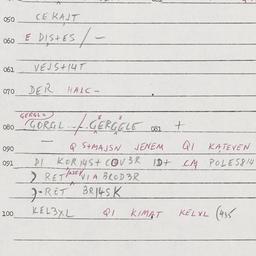 050 CEKAJT
060 E DIS+ES / —
061 VEJS+I4T
070 DER HALC —
GERGL=)
080 (GORGL ../.. GERGELE 081 +
090 — Q S+MAJSN JENEM QI KATEVEN
091 DI KORI4S+ COV3R ID+ POLES814
) RET VIA BROD3R
)-RET BRI4SK
100 KEL3XL QI KIMAT KELXL (435